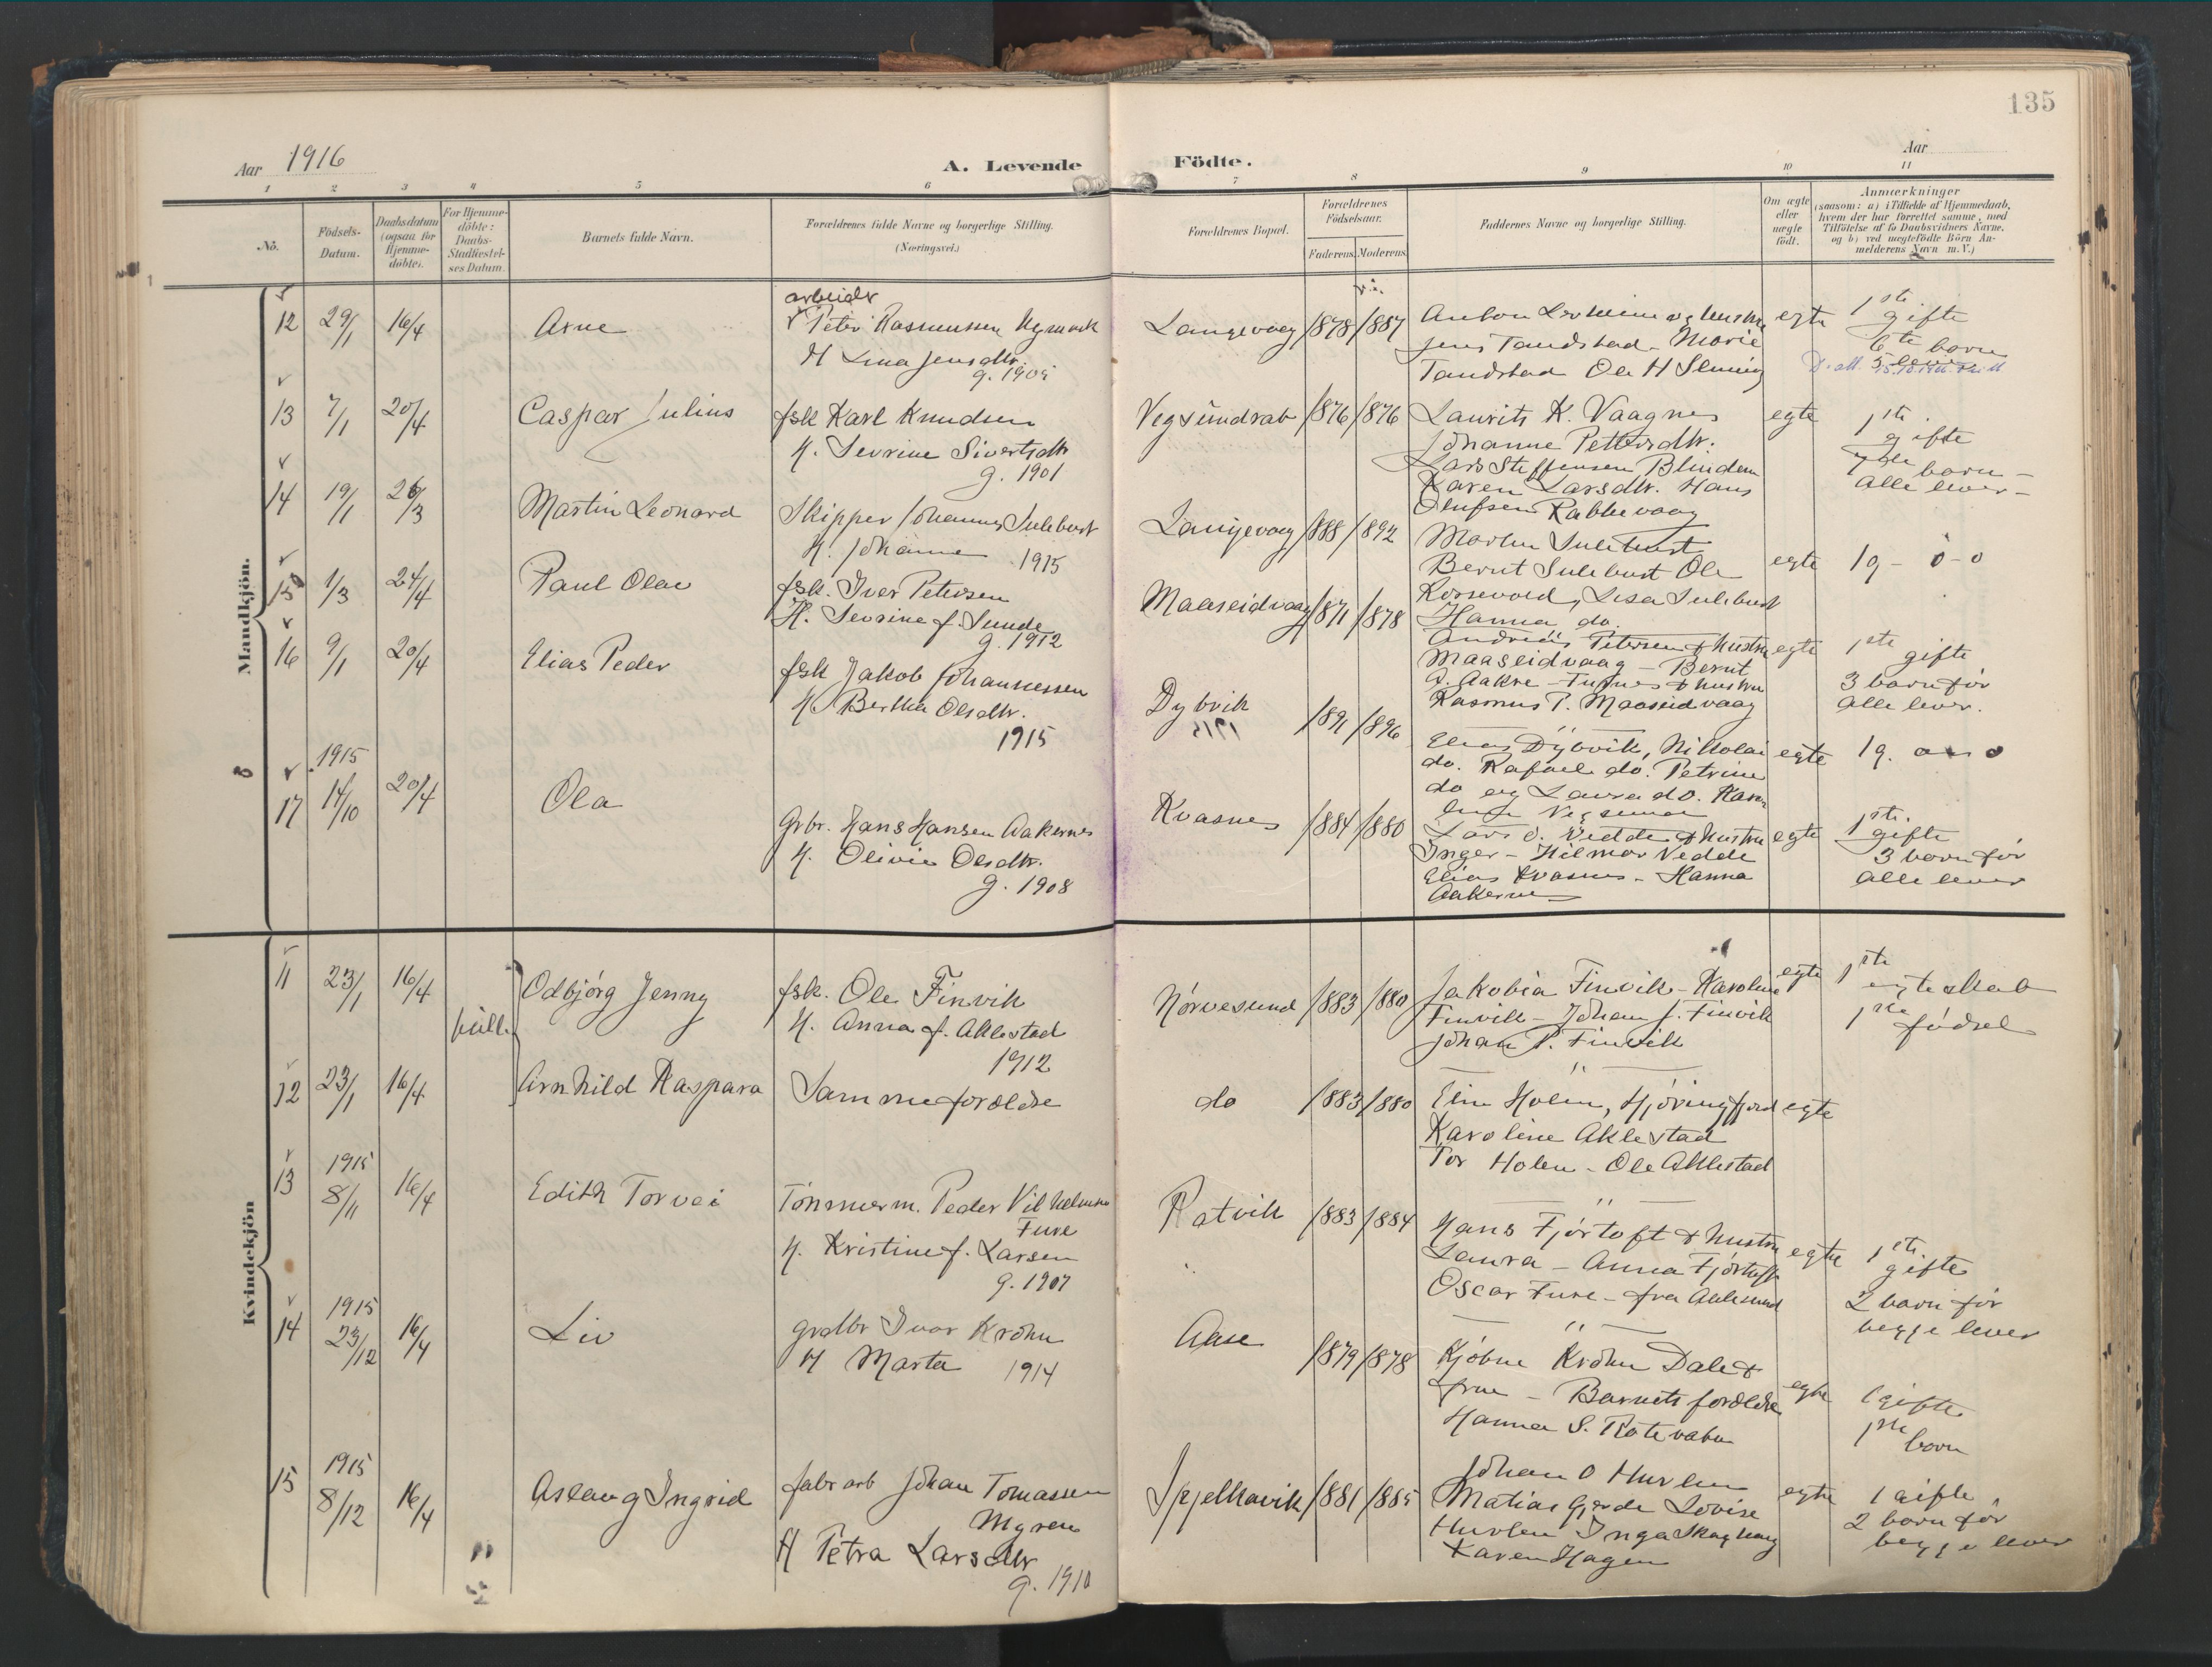 135
Aar 1916
A. Levende Födte.
Aar
1 2 3 4 5 6 7 8 9 10 11
No.
Födsels-Datum.
Daabsdatum (ogsaa for Hjemme-döbte).
For Hjemme-döbte: Daabs-Stadfæstel-ses Datum.
Barnets fulde Navn.
Forældrenes fulde Navne og borgerlige Stilling. (Næringsvei.)
Forældrenes Bopæl.
Forældrenes Födselsaar.
Faderens Moderens
Faddernes Navne og borgerlige Stilling.
Om ægte eller uægte födt.
Anmærkninger
(saasom: a) i Tilfælde af Hjemmedaab,
hvem der har forrettet samme, med
Tilföielse af to Daabsvidners Navne,
og b) ved uægtefödte Börn An-
melderens Navn m. V.)
Mandkjön.
12 29/1 16/4 Arne
arbeider
Peter Rasmussen
H Lina Jensdtr.
g. 1905
Langevaag 1878 1887
Anton og hustru
Jens Tandstad - Marie
Tandstad Ole H
egte 1ste gifte
6te barn
13 7/1 20/4 Caspar Julius
fsk Karl Knudsen
H. Sevrine Sivertsdtr
g. 1901
Vegsundrab 1876 1876
Laurits K. Vaagnes
Johanne Pettersdtr.
Lars Steffensen Blindem
Karen Larsdtr. Hans
Olufsen Rabbevaag
egte 1ste gifte
7de barn -
alle lever -
14 19/1 26/3 Martin Leonard
Skipper Johannes Sulebust
H. Johanne 1915
Langevaag 1888 1892
Martin Sulebust
Bernt Sulebust Ole
Korsevold, Lisa Sulebust
Hanna do.
egte 1g - 0 - 0
15 1/3 24/4 Paul Olav
fsk. Iver Petersen
H. Sevrine f. Sunde
g. 1912
Maaseidvaag 1871 1878
Andreas Petersen & hustru
Maaseidvaag - Bernt
Aakre - & hustru
Rasmus P. Maaseidvaag
egte 1ste gifte
3 barn før
alle lever.
16 9/1 20/4 Elias Peder
fsk Jakob Johannessen
H. Bertha Olsdtr.
1915
Dybvik 1891 1896
Elias Dybvik, Nikolai
do. Rafael do. Petrine
do og Laura do.
egte 1g.
17 1915 14/10 20/4 Ola
Grbr. Hans Hansen Aakernes
H. Olivia Olsdtr.
g. 1908
Kvasnes 1884 1880
Lars O. Vedde & hustru
Inger - Hilmar Vedde
Elias Kvasnes - Hanna
Aakernes
egte 1ste gifte
3 barn før
alle lever
Kvindekjön
11 23/1 16/4 Odbjørg Jenny
fsk. Ole Finvik
H. Anna f. Aklestad
1912
Nørvesund 1883 1880
Jakobia Finvik - Karoline
Finvik - Johan J. Finvik
Johan P. Finvik
egte 1ste egteskab
1ste fødsel
12 23/1 16/4 Arnhild Kaspara
Samme forældre
do 1883 1880
Holen, Hjøringfjord
Karoline Aklestad
Tor Holen - Ole Aklestad
egte
13 1915 8/11 16/4 Edith Torvei
Tømmerm. Peder Vilhelmsen
Fure
H. Kristine f. Larsen
g. 1907
Ratvik 1883 1884
Hans Fjørtoft & hustru
Laura - Anna Fjørtoft
Oscar Fure - fra Aalesund
egte 1ste gifte
2 barn før
begge lever
14 1915 23/12 16/4 Liv
grdbr Ivar Krohn
H Marta 1914
Aase 1879 1878
Kjøbm Krohn Dale &
frue - Barnets forældre
Hanna S. Rotevatn
egte 1 gifte
1ste barn
15 1915 8/12 16/4 Aslaug Ingrid
fabr arb Johan Tomassen
Myren
H Petra Larsdtr
g. 1910
Spjelkavik 1881 1885
Johan O Hurlen
Matias Gjerde Lovise
Hurlen Inga Skaghaug
Karen Hagen
egte 1 gifte
2 barn før
begge lever